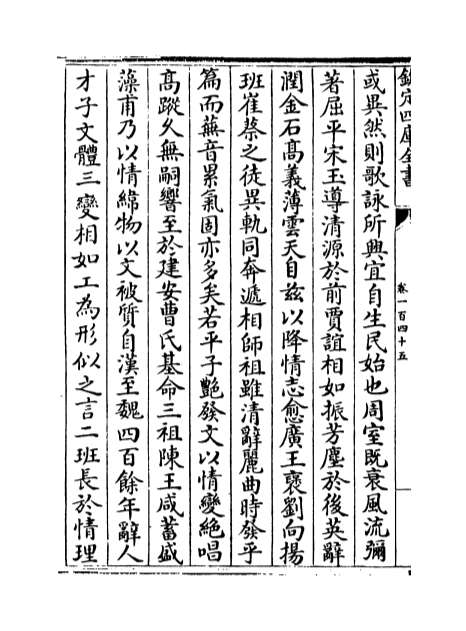 欽定四庫全書
卷一百四十五
或異然則歌詠所興宜自生民始也周室既衰風流彌
著屈平宋玉導清源於前賈誼相如振芳塵於後英辭
潤金石髙義薄雲天自兹以降情志愈廣王褒劉向揚
班崔蔡之徒異軌同奔遞相師祖雖清辭麗曲時發乎
篇而蕪音累氣固亦多矣若平子艶發文以情變絶唱
髙蹤乆無嗣響至於建安曹氏基命三祖陳王咸蓄盛
藻甫乃以情緯物以文被質自漢至魏四百餘年辭人
才子文體三變相如工為形似之言二班長於情理